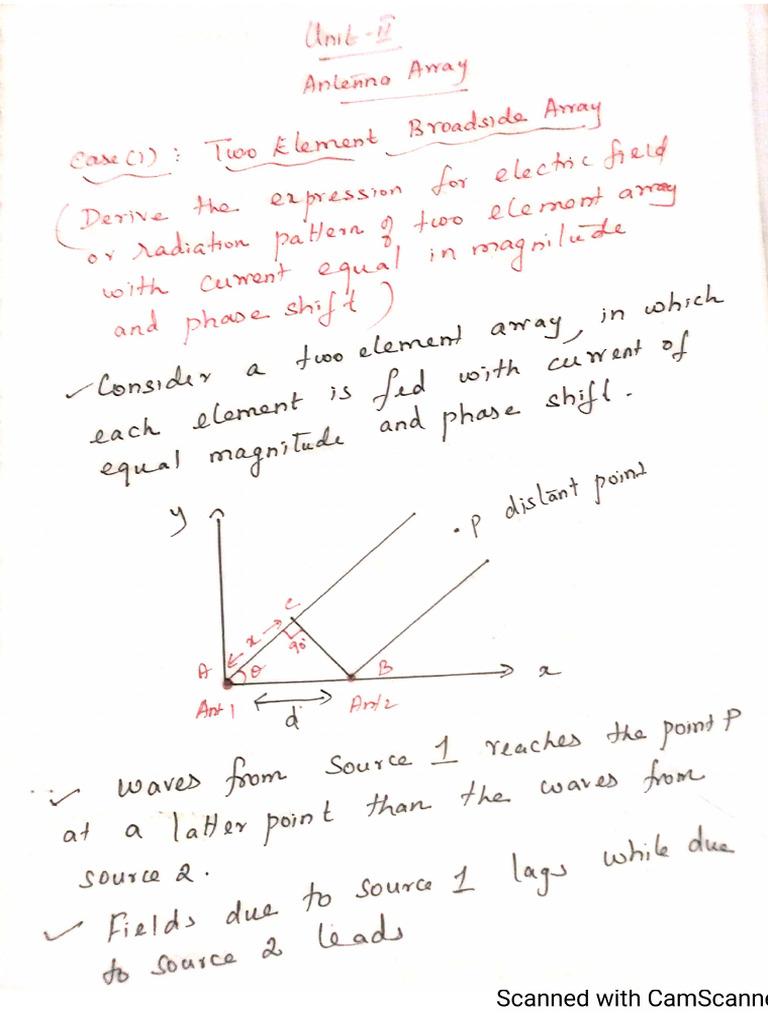 Unit-II
Antenna Array
Case(1): Two Element Broadside Array
(Derive the expression for electric field
or radiation pattern of two element array
with current equal in magnitude
and phase shift)
✓ Consider a two element array, in which
each element is fed with current of
equal magnitude and phase shift.
y
. P distant point
C
x
90°
A
θ
B
x
Ant 1
d
Ant 2
✓ waves from source 1 reaches the point P
at a latter point than the waves from
source 2.
✓ Fields due to source 1 lags while due
to source 2 leads
Scanned with CamScanne